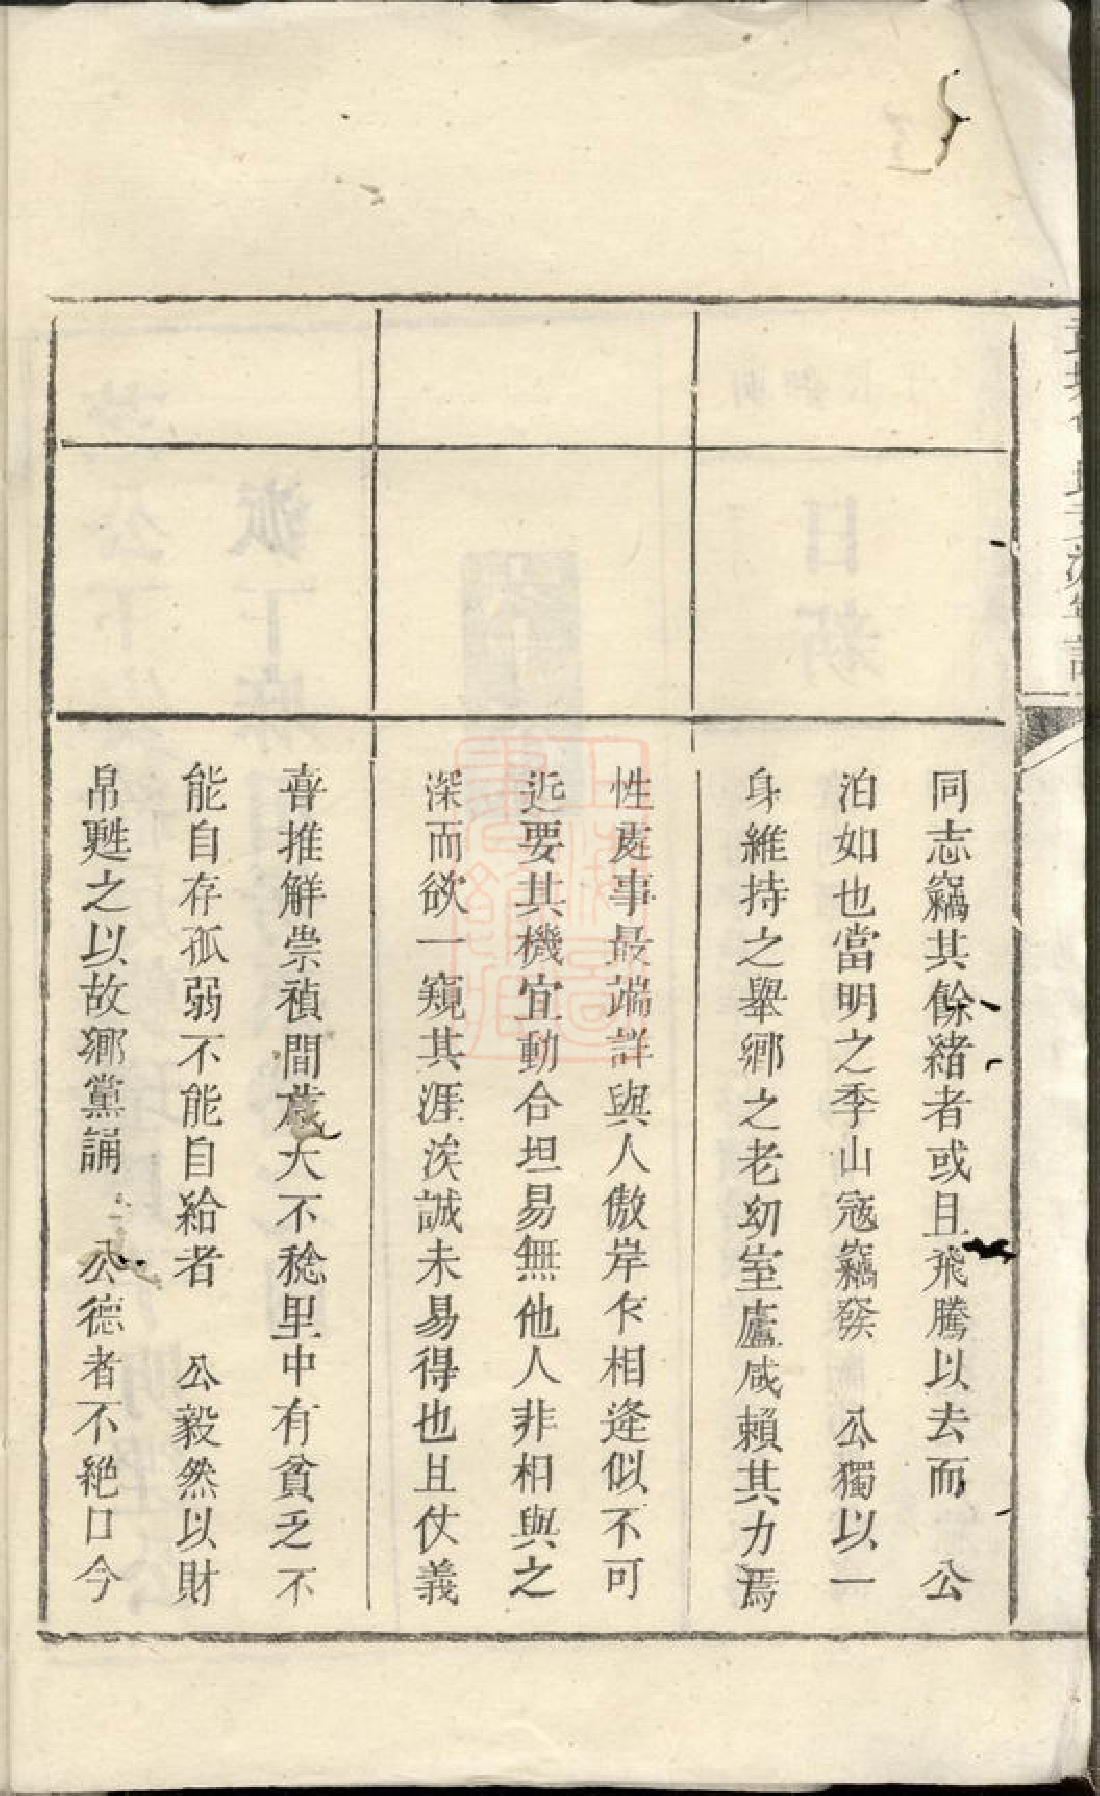 同志竊其餘緒者或且飛騰以去而　公
泊如也當明之季山寇竊發　公獨以一
身維持之舉鄉之老幼室廬咸賴其力焉
性處事最端詳與人傲岸乍相逢似不可
近要其機宜動合坦易無他人非相與之
深而欲一窺其涯涘誠未易得也且仗義
喜推解崇禎間歲大不稔里中有貧乏不
能自存孤弱不能自給者　公毅然以財
帛甦之以故鄉黨誦　公德者不絕口今